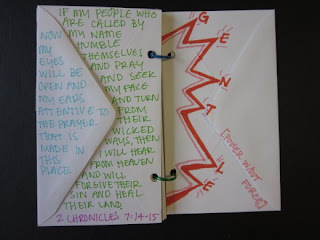 IF MY PEOPLE WHO
ARE CALLED BY
MY NAME
HUMBLE
THEMSELVES
AND PRAY
AND SEEK
MY FACE
AND TURN
FROM
THEIR
WICKED
WAYS, THEN
I WILL HEAR
FROM HEAVEN
AND WILL
FORGIVE THEIR
SIN AND HEAL
THEIR LAND.
NOW
MY
EYES
WILL BE
OPEN AND
MY EARS
ATTENTIVE TO
THE PRAYER
THAT IS
MADE IN
THIS
PLACE.
2 CHRONICLES 7:14-15
GENTLE
[POWER W/OUT
FORCE]